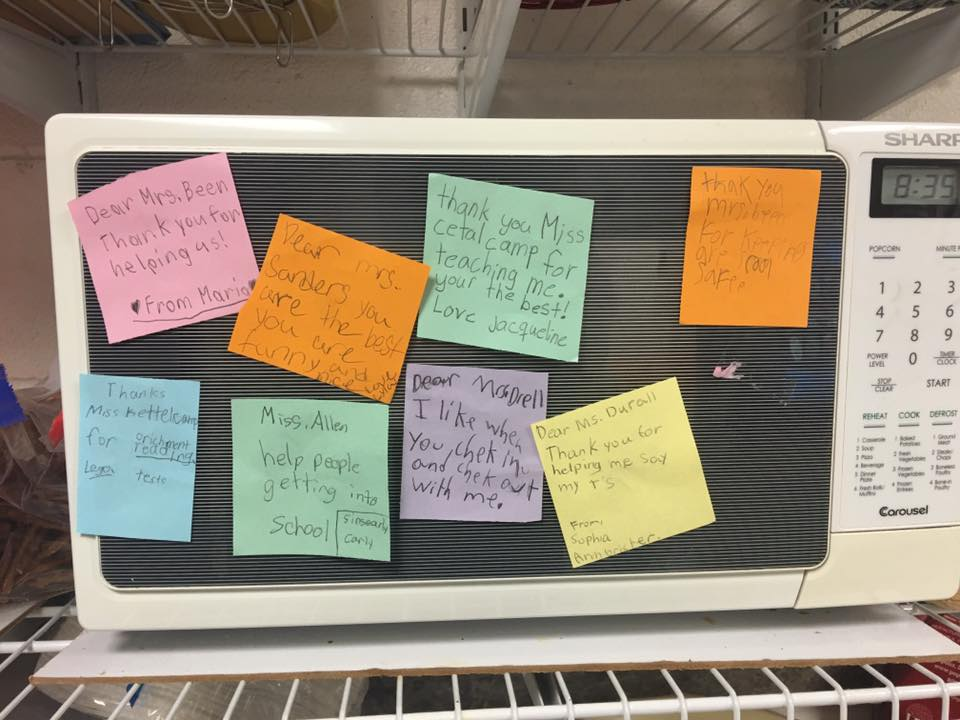 Dear Mrs. Been
Thank you for
helping us!
♥From Maria♥
Dear mrs.
Sanders you
are the best
you are
funny and
nice
thank you Miss
cetalcamp for
teaching me.
your the best!
Love Jacqueline
thak you
mrs. been
For Keeping
are
safe
Thanks
Miss
for enrichment
reading
tests
Miss. Allen
help people
getting into
School
Sinsearly
Carly
Dear Mr. Drell
I like when
you chek in
and chek out
with me.
Dear Ms. Durall
Thank you for
helping me say
my r's
From,
Sophia
SHARP
8:35
POPCORN
MINUTE
1 2 3
4 5 6
7 8 9
POWER
LEVEL
0
TIMER
CLOCK
STOP
CLEAR
START
REHEAT COOK DEFROST
1 Casserole
2 Soup
3 Pizza
4 Beverage
5 Dinner
Plate
6 Fresh Rolls/
Muffins
1 Baked
Potatoes
2 Fresh
Vegetables
3 Frozen
Vegetables
4 Frozen
Entrees
1 Ground
Meat
2 Steaks/
Chops
3 Boneless
Poultry
4 Bone-in
Poultry
Carousel